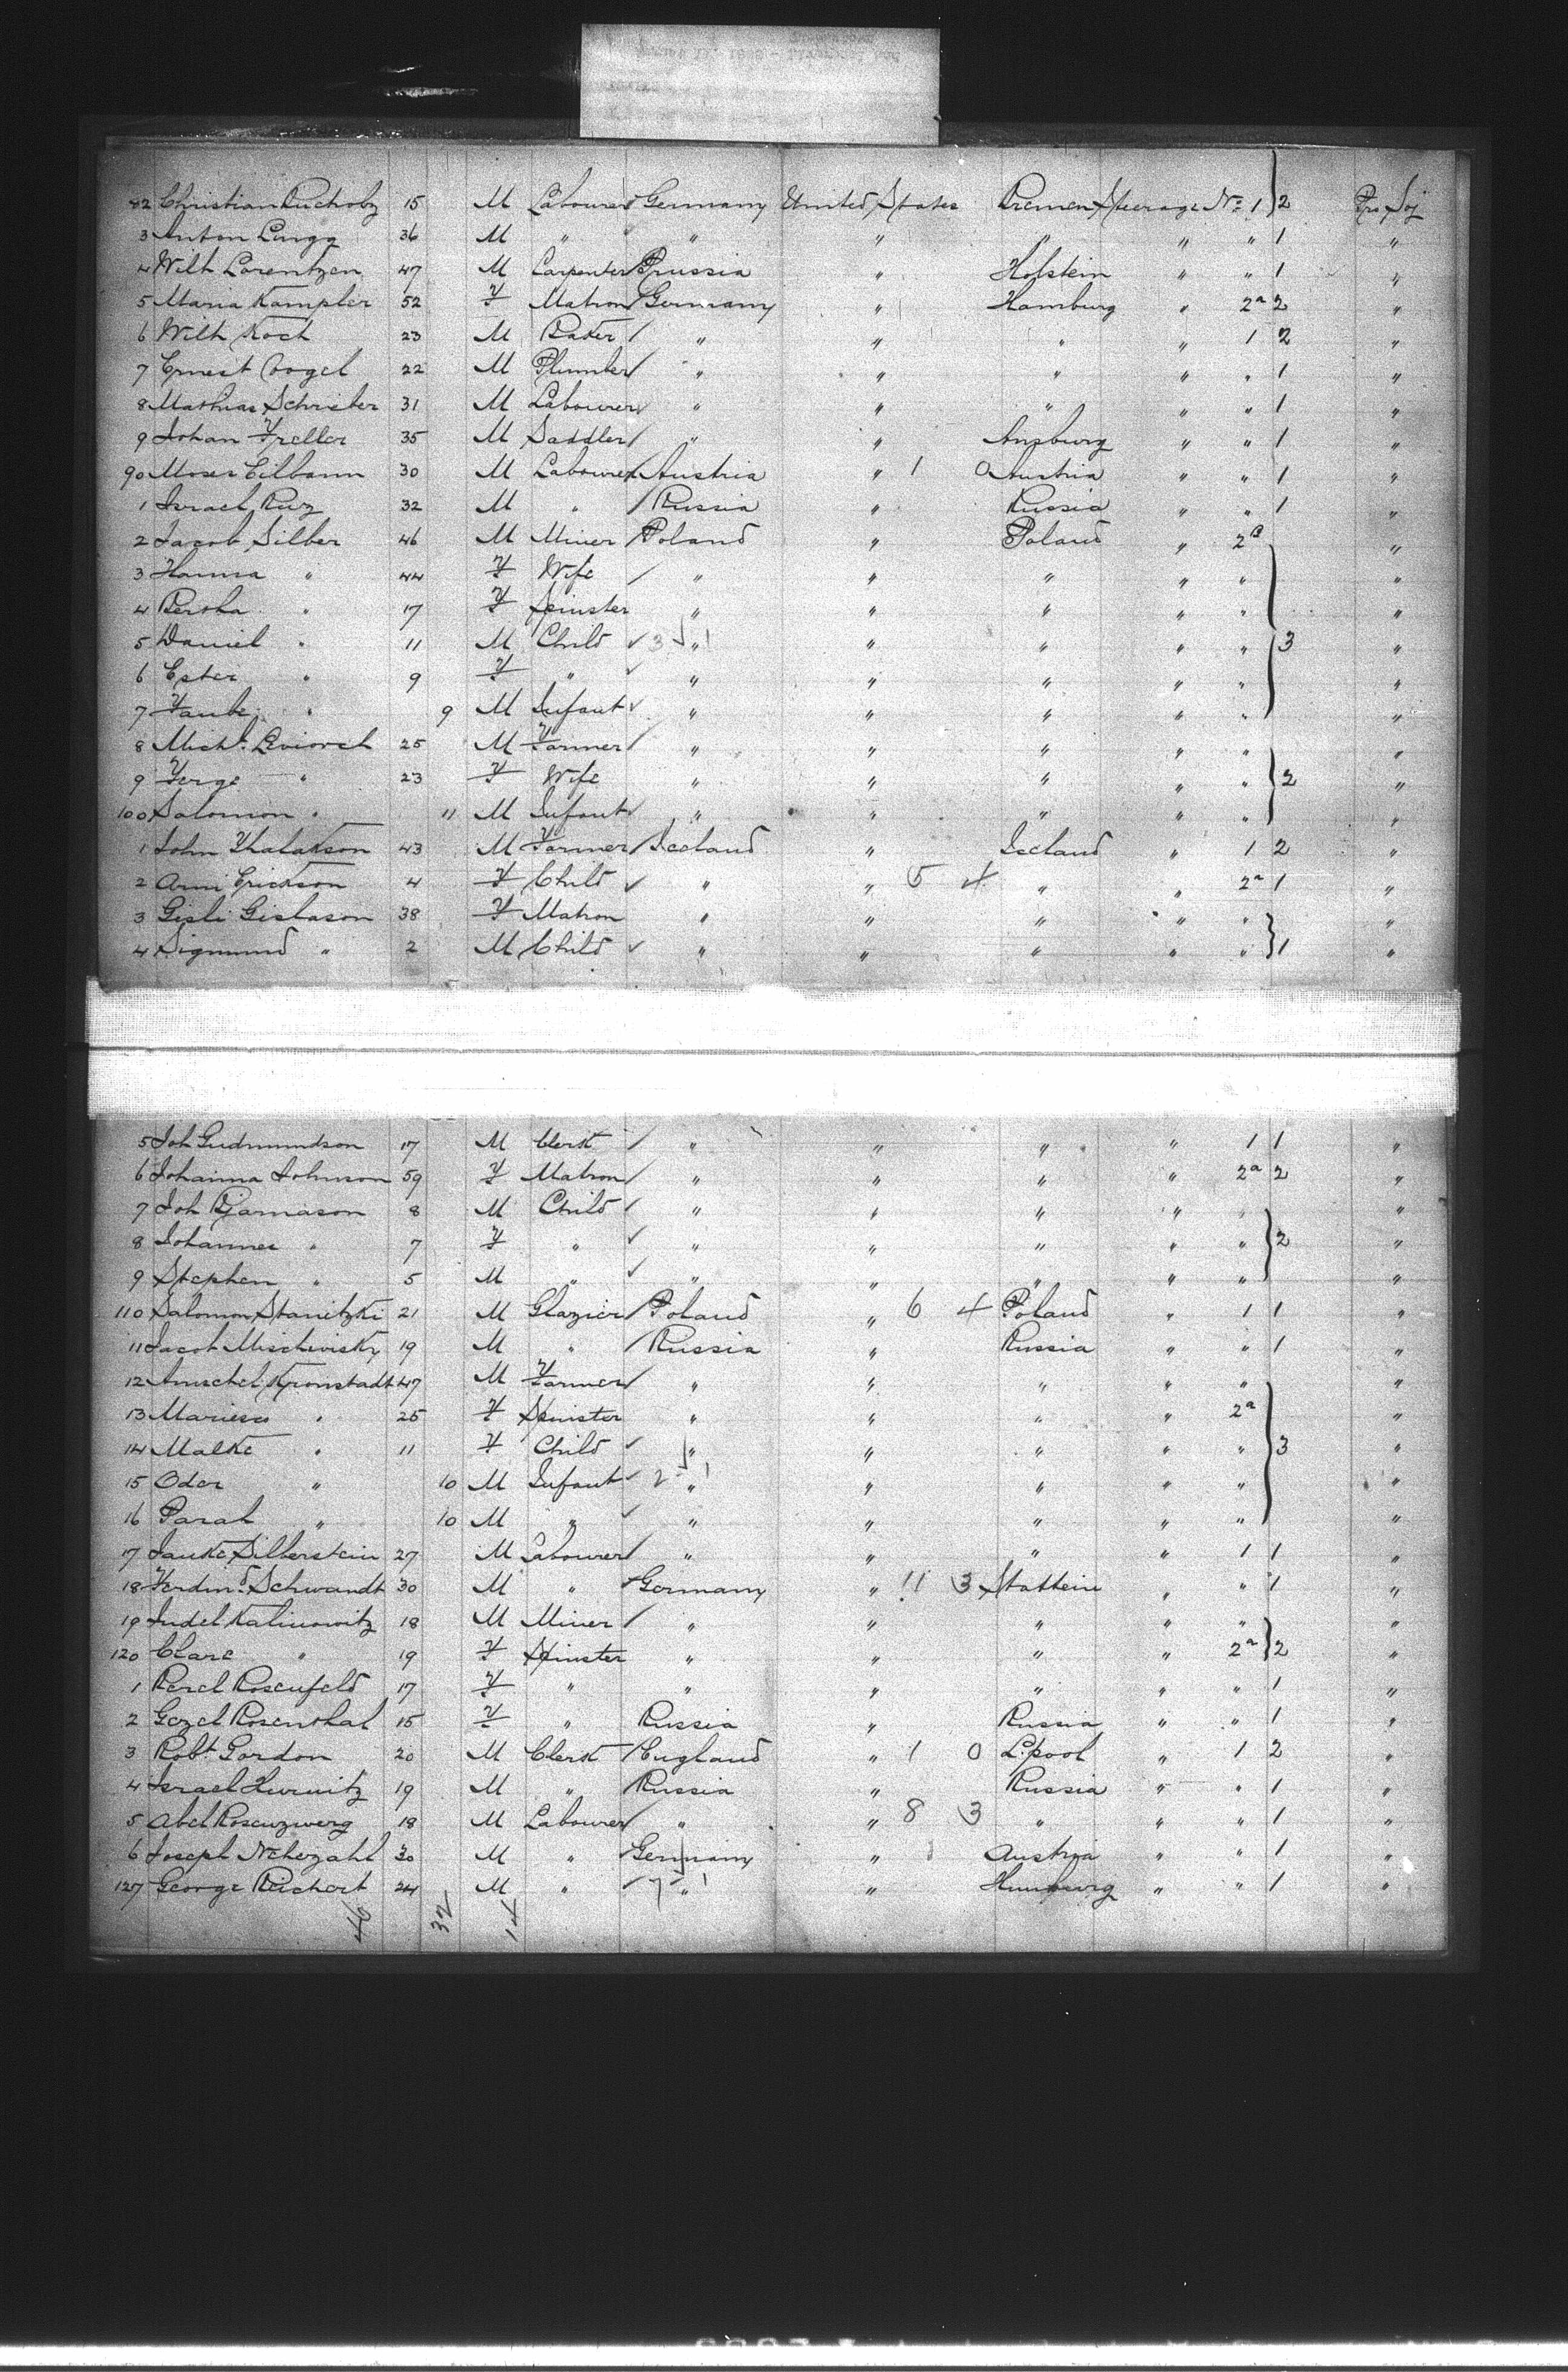 82 Christian Rucholz 15 M Labourer Germany United States Bremen Steerage No 1 2 Pro Soj
3 Anton Lingg 36 M " " " " " " " 1 "
4 Wilh Lorentzen 47 M Carpenter Prussia " Holstein " " 1 "
5 Maria Kampler 52 F Matron Germany " Hamburg " 2a 2 "
6 Wilh Koch 23 M Baker / " " " " 1 2 "
7 Ernest Vogel 22 M Plumber / " " " " " 1 "
8 Mathias Schrieber 31 M Labourer / " " " " " 1 "
9 Johan Freller 35 M Saddler / " " Ansburg " " 1 "
90 Moser Eilbann 30 M Labourer Austria " 1 0 Austria " " 1 "
1 Israel Ruz 32 M " / Russia " Russia " " 1 "
2 Jacob Silber 46 M Miner / Poland " Poland " 2a "
3 Hanna " 44 F Wife / " " " " " "
4 Bertha " 17 F Spinster " " " " " "
5 Daniel " 11 M Child ✓ 3 " 1 " " " " 3 "
6 Ester " 9 F " ✓ " " " " " "
7 " 9 M Infant ✓ " " " " " "
8 Michl. 25 M Farmer / " " " " " "
9 Ferge " 23 F Wife " " " " " 2 "
100 Salomon " 11 M Infant ✓ " " " " " "
1 John 43 M Farmer / Iceland " Iceland " 1 2 "
2 Arni Erickson 4 F Child ✓ " " 5 4 " " 2a 1 "
3 Gisli Gislason 38 F Matron " " " " " "
4 Sigmund " 2 M Child ✓ " " " " " 1 "
5 Joh Gudmundson 17 M Clerk / " " " " 1 1 "
6 Johanna Johnson 59 F Matron / " " " " 2a 2 "
7 Joh Bjarnason 8 M Child / " " " " " "
8 Johannes " 7 F " ✓ " " " " " 2 "
9 Stephen " 5 M " ✓ " " " " " "
110 Salomon Stanitzki 21 M Glazier / Poland " 6 4 Poland " 1 1 "
11 Jacob Mischevisky 19 M " / Russia " Russia " " 1 "
12 Amschel Kronstadt 47 M Farmer / " " " " " "
13 " 25 F Spinster " " " " 2a "
14 Malke " 11 F Child ✓ " " " " " 3 "
15 Oder " 10 M Infant ✓ 2 " 1 " " " " "
16 Parah " 10 M " ✓ " " " " " "
17 Silberstein 27 M Labourer / " " " " 1 1 "
18 Ferdind. Schwandt 30 M " Germany " 11 3 Stattein " " 1 "
19 Judel Kalinowitz 18 M Miner / " " " " " "
120 Clare " 19 F Spinster " " " " 2a 2 "
1 Perel Rosenfeld 17 F " " " " " " 1 "
2 Gezel Rosenthal 15 F " Russia " Russia " " 1 "
3 Robt Gordon 20 M Clerk / England " 1 0 L.pool " 1 2 "
4 Israel Hurwitz 19 M " / Russia " Russia " " 1 "
5 Abel Rosenzwerg 18 M Labourer / " " 8 3 " " " 1 "
6 Joseph Neherzahl 30 M " Germany " Austria " " 1 "
127 George Reichert 24 M " / 7 " 1 " Hamburg " " 1 "
46 32 14